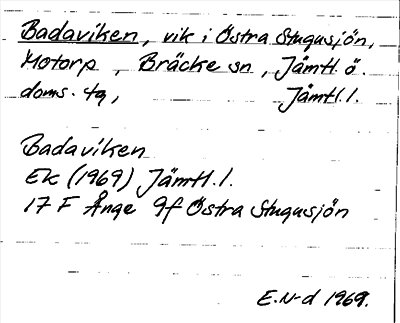 Badaviken, vik i Östra Stugusjön,
Motorp, Bräcke sn, Jämtl. ö.
doms. tg, Jämtl. l.
Badaviken
Ek (1969) Jämtl. l.
17 F Ånge 9f Östra Stugusjön
E. N-d 1969.